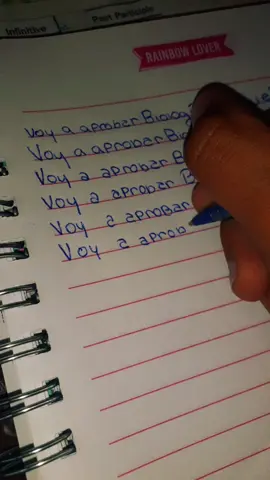 Infinitive Past Participle
RAINBOW LOVER
Voy a aprobar Biolog
Voy a aprobar Bio
Voy a aprobar B
Voy a aprobar B
Voy a aprobar
Voy a aprob